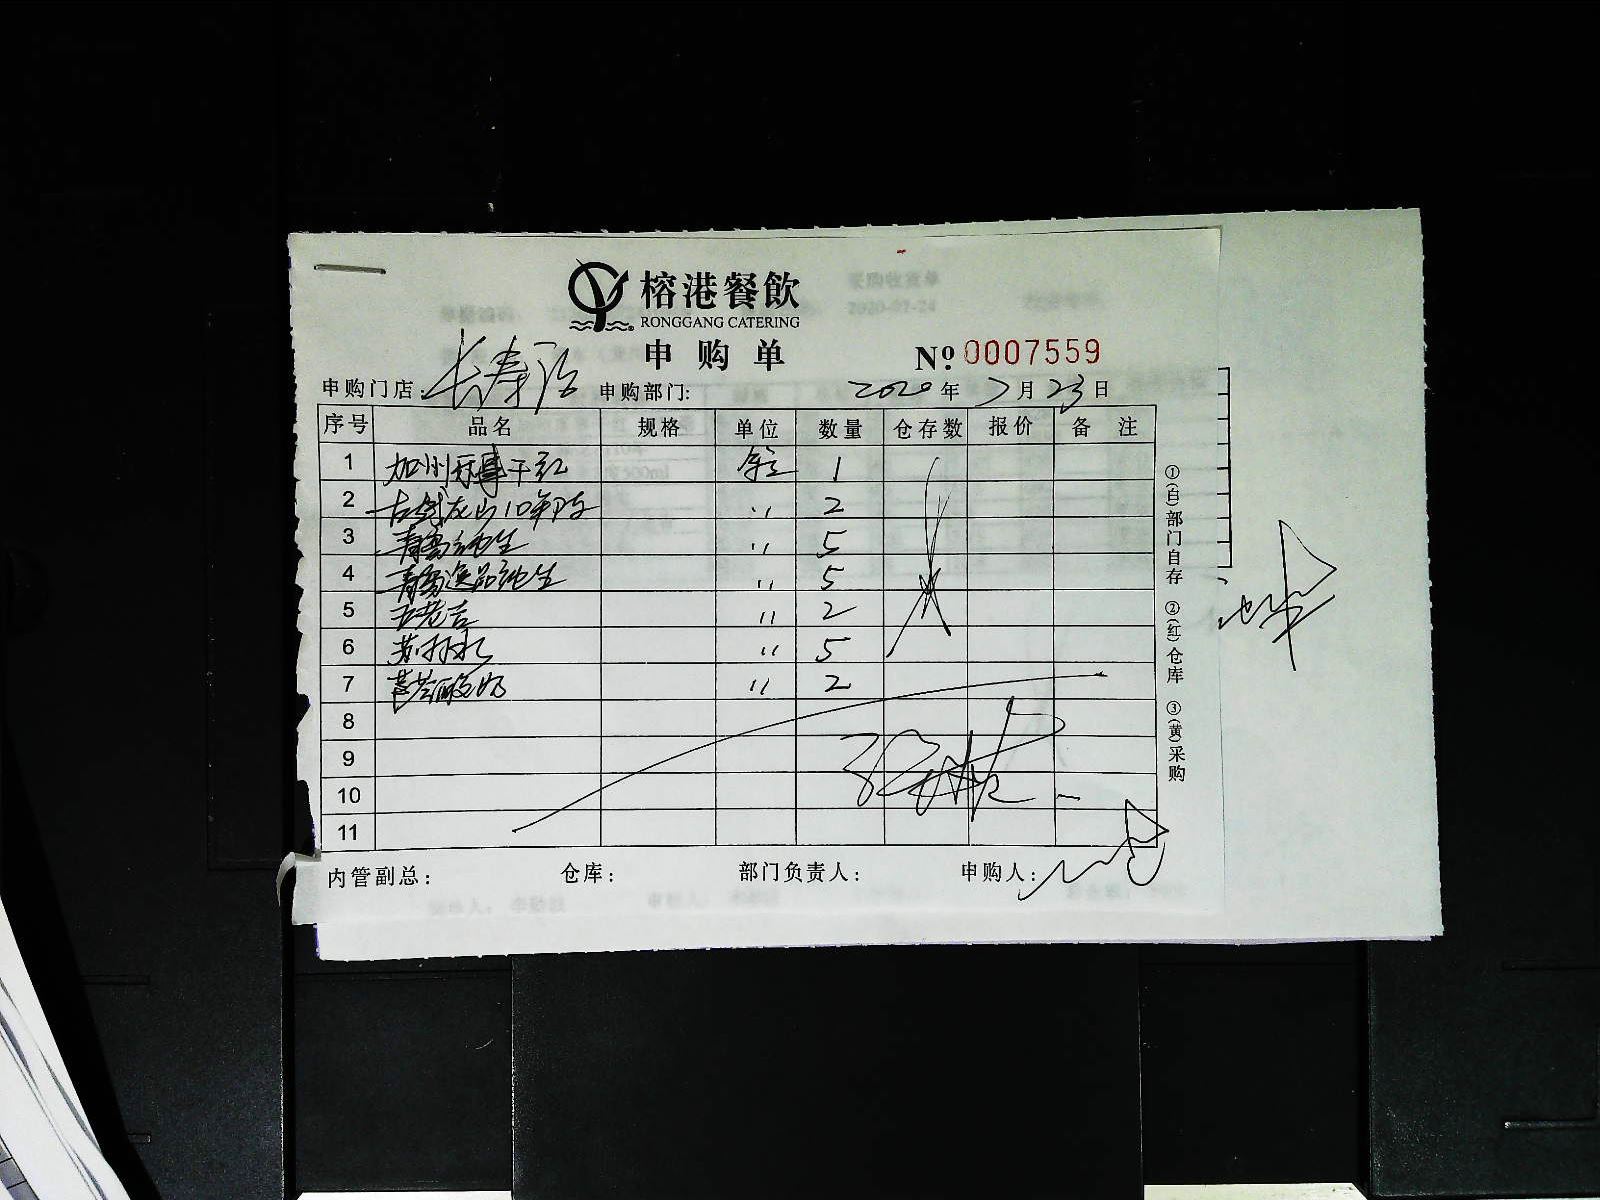 榕港餐飲
RONGGANG CATERING
申购单
№ 0007559
申购门店: 长寿路 申购部门: 2020年7月23日
序号 品名 规格 单位 数量 仓存数 报价 备注
1 加州 干红 箱 1
2 古越龙山10年 " 2
3 青岛纯生 " 5
4 青岛逸品纯生 " 5
5 王老吉 " 2
6 苏打水 " 5
7 酸奶 " 2
8
9
10
11
内管副总: 仓库: 部门负责人: 申购人:
①(白)部门自存 ②(红)仓库 ③(黄)采购